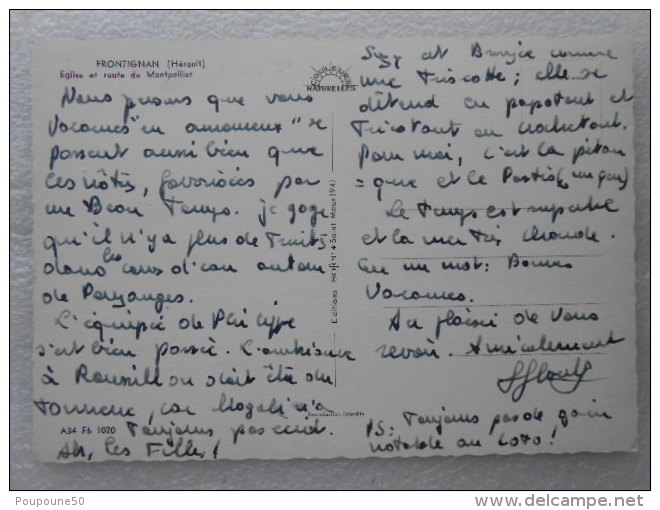 FRONTIGNAN (Hérault)
Eglise et route de Montpellier
COULEURS
NATURELLES
Nous pensons que vous
vacances "en amoureux" se
passent aussi bien que
les nôtres, favorisées par
un Beau Temps. Je gage
qu'il n'y a plus de Truites
dans les cours d'eau autour
de
L'équipée de Philippe
s'est bien passée. L'ambiance
à Roussillon doit être du
tonnerre, car Magali n'a
Toujours pas écrit.
Ah, les Filles!
A34 F6 1020
Editions S * Saint Maur (94)
Reproduction interdite
Suzy est Bronzée comme
une Biscotte; elle se
détend en papotant et
Tricotant ou crochetant.
Pour moi, c'est la pétan
=que et le Pastis (un peu)
Le Temps est superbe
et la mer Très chaude.
En un mot: Bonnes
Vacances.
Au plaisir de vous
revoir. Amicalement
PS: Toujours pas de gain
notable au LOTO!
Poupoune50